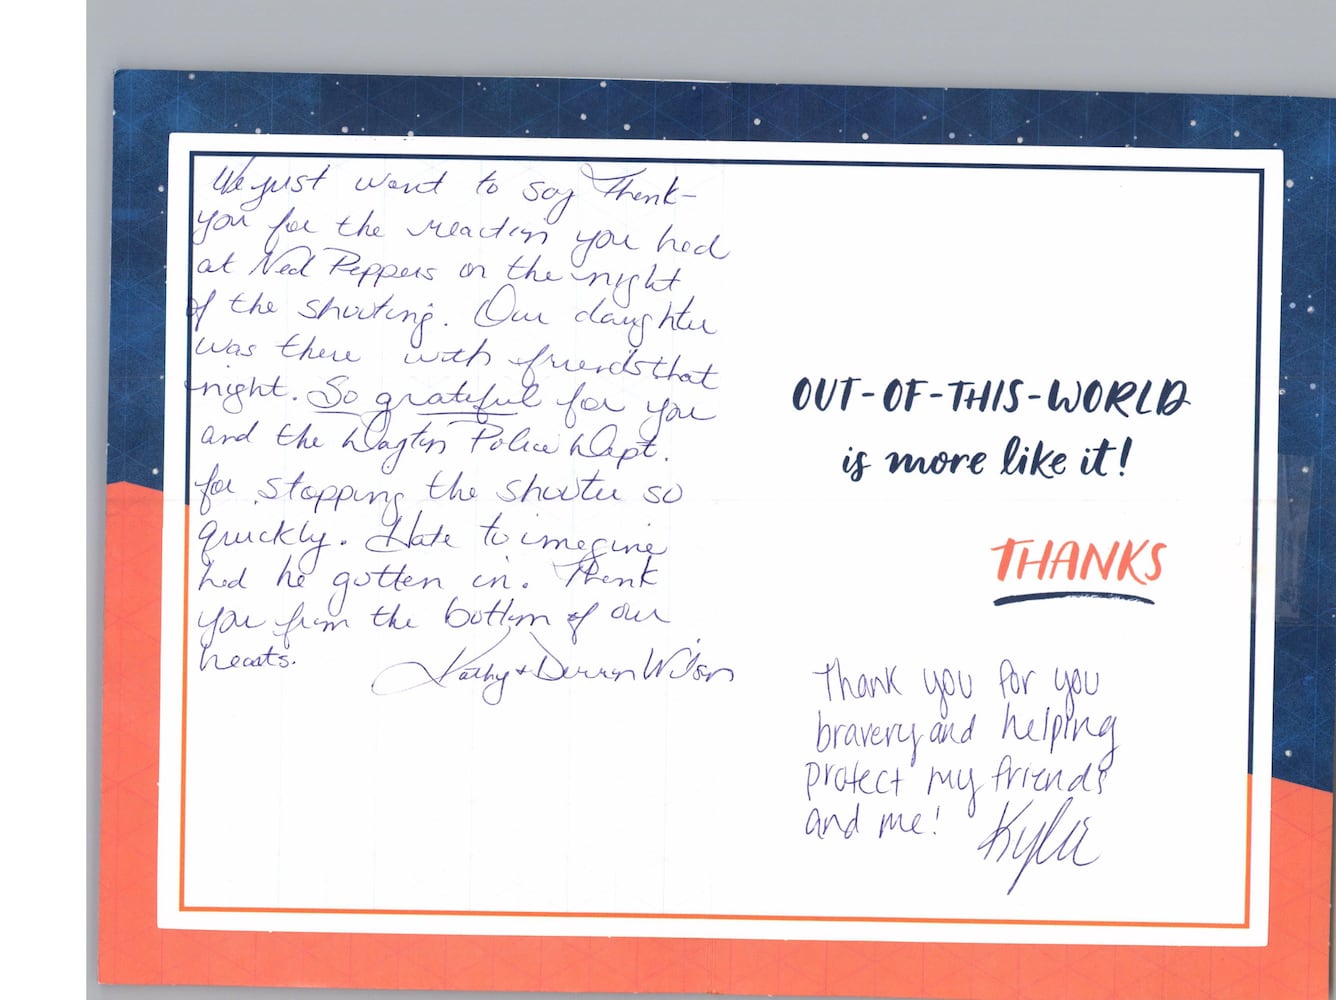 We just want to say Thank-
you for the reaction you had
at Ned Peppers on the night
of the shooting. Our daughter
was there with friends that
night. So grateful for you
and the Dayton Police Dept.
for stopping the shooter so
quickly. Hate to imagine
had he gotten in. Thank
you from the bottom of our
hearts.
Kathy + Derron Wilson
OUT-OF-THIS-WORLD
is more like it!
THANKS
Thank you for you
bravery and helping
protect my friends
and me! Kylie